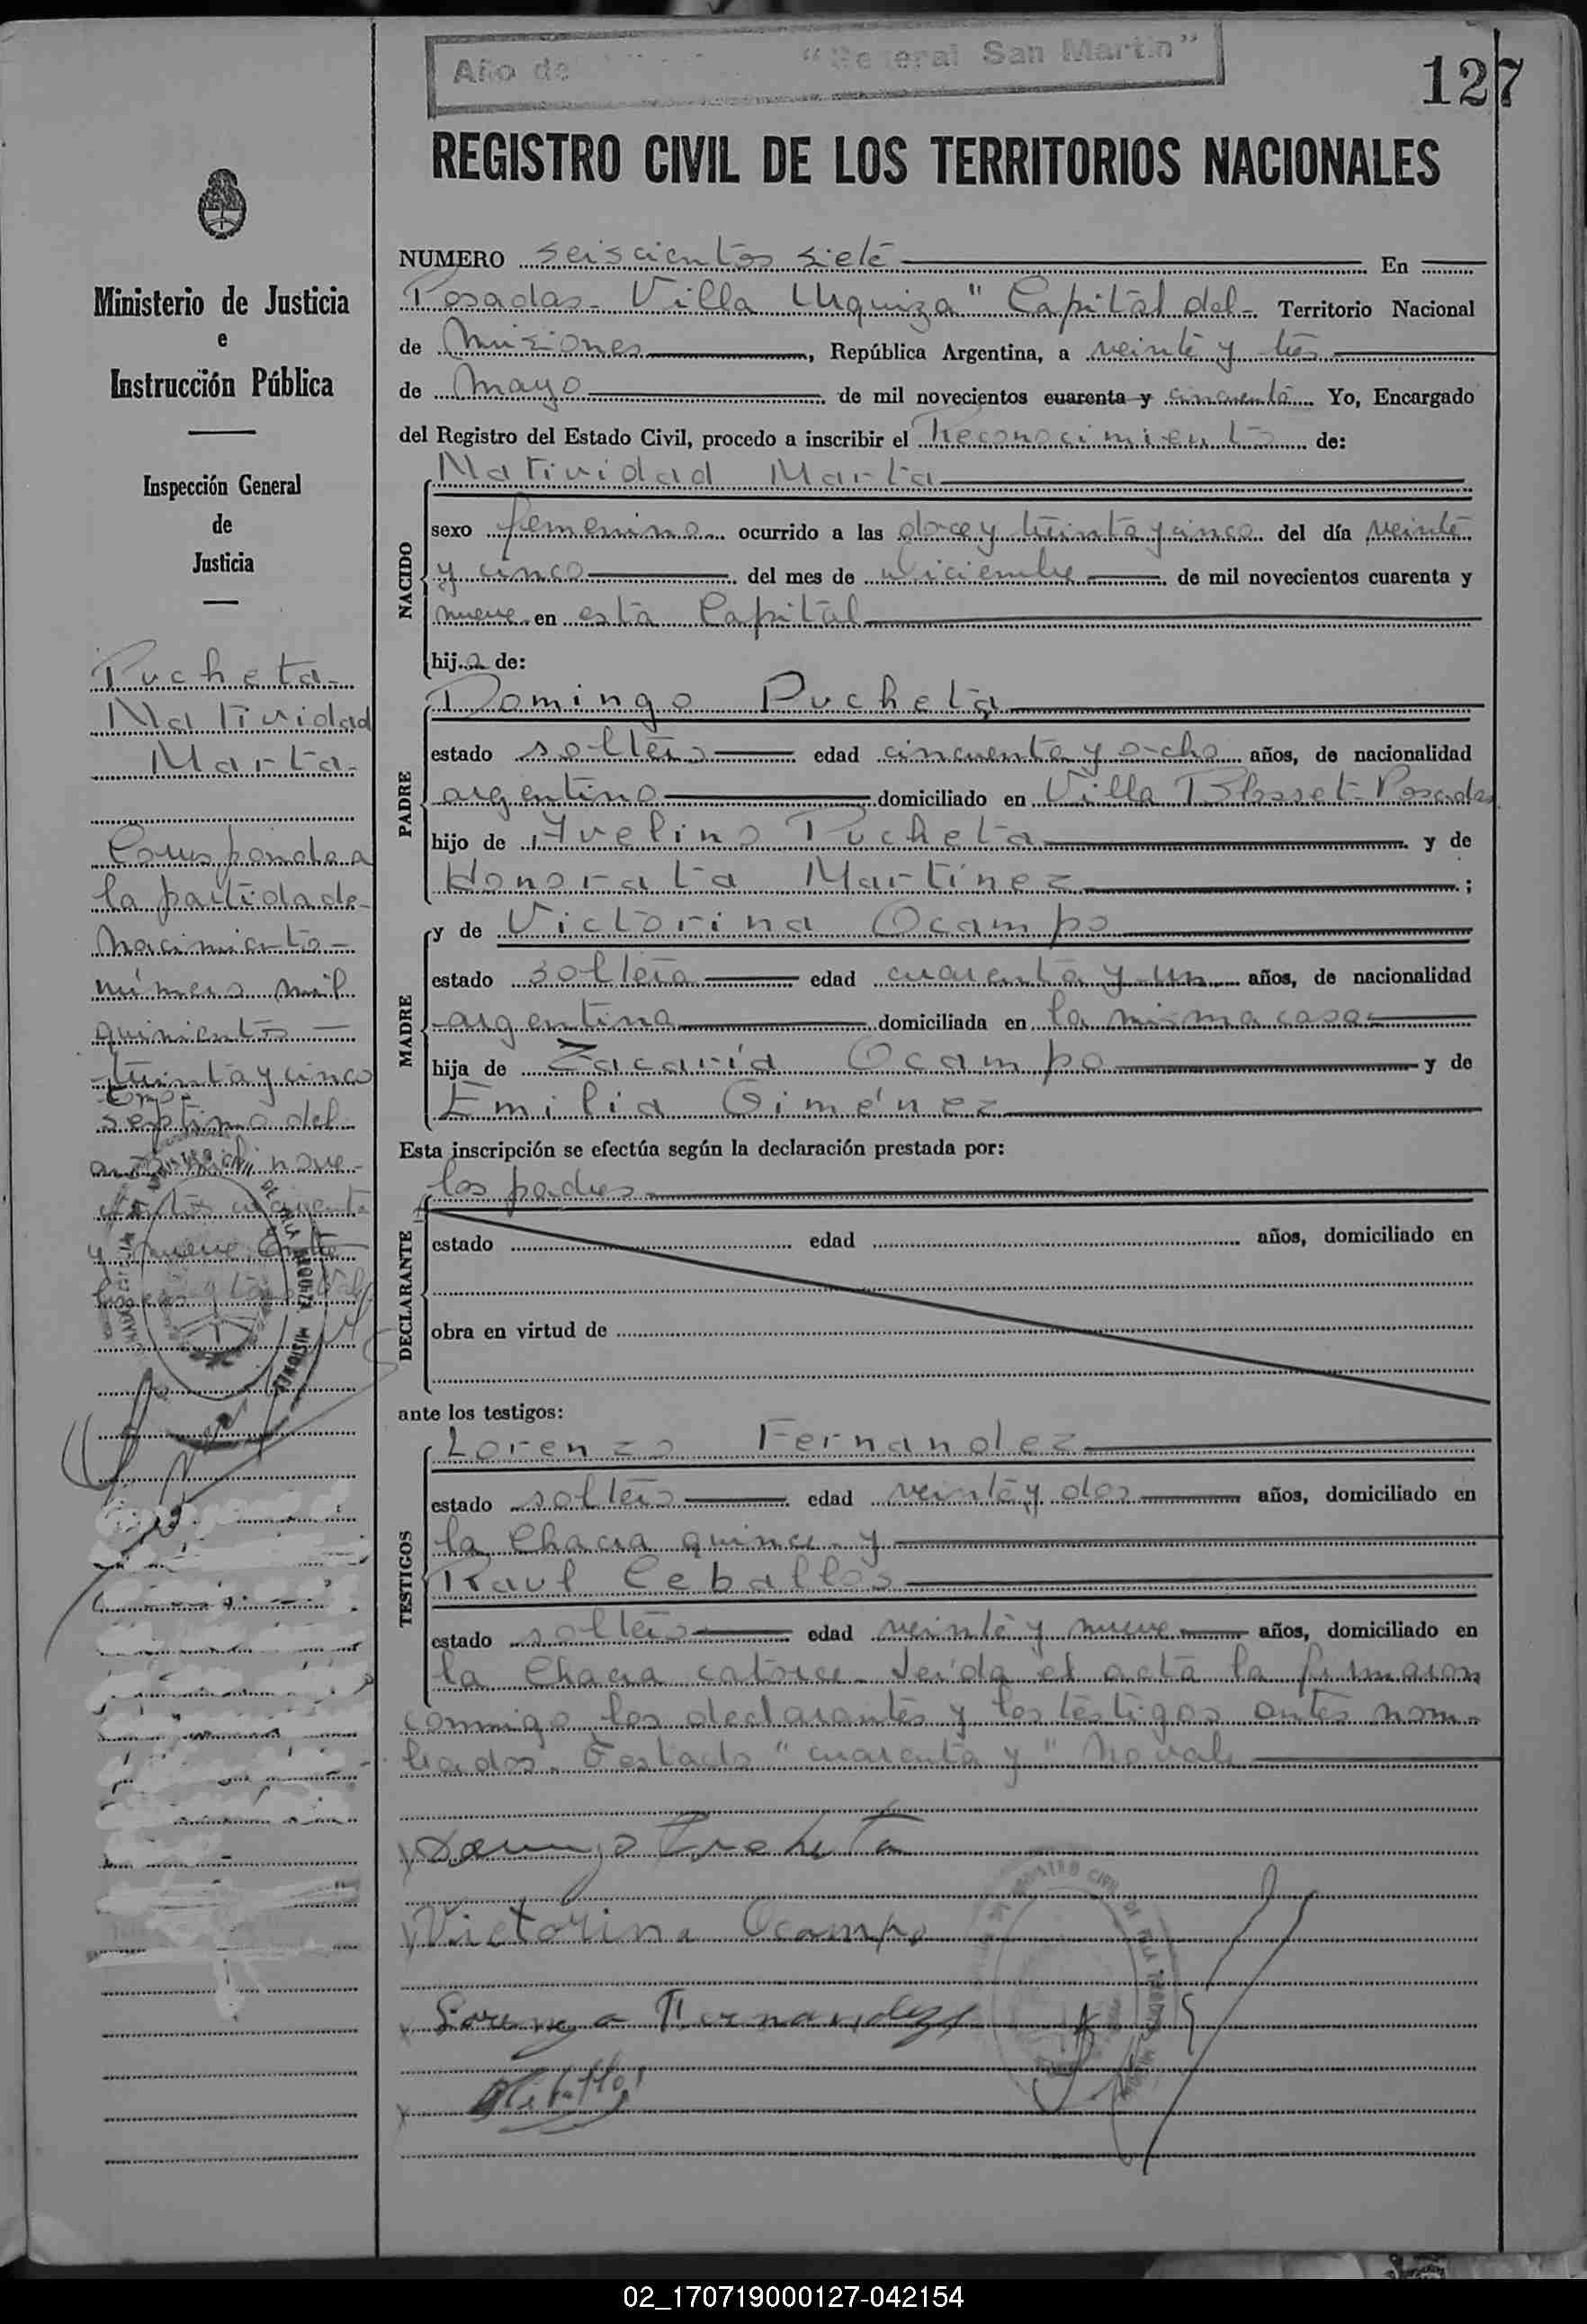 Año de "General San Martín"
127
REGISTRO CIVIL DE LOS TERRITORIOS NACIONALES
Ministerio de Justicia
e
Instrucción Pública
Inspección General
de
Justicia
Pucheta-
Natividad
Marta-
Corresponde a
la partida de-
Nacimiento-
número mil
quinientos-
treinta y cinco
tomo
septimo del
año mil nove-
cientos cuarenta
y nueve.
NUMERO seiscientos siete En
Posadas-Villa Urquiza" Capital del- Territorio Nacional
de Misiones, República Argentina, a veinte y tres
de Mayo de mil novecientos cuarenta y cincuenta Yo, Encargado
del Registro del Estado Civil, procedo a inscribir el Reconocimiento de:
NACIDO
Natividad Marta
sexo femenino ocurrido a las doce y treinta y cinco del día veinte
y cinco del mes de Diciembre de mil novecientos cuarenta y
nueve en esta Capital
hija de:
PADRE
Domingo Pucheta
estado soltero edad cincuenta y ocho años, de nacionalidad
argentino domiciliado en Villa Blosset-Posadas
hijo de Yvelino Pucheta y de
Honorata Martínez;
MADRE
y de Victorina Ocampo
estado soltera edad cuarenta y un años, de nacionalidad
argentina domiciliada en la misma casa-
hija de Zacaría Ocampo y de
Emilia Giménez
Esta inscripción se efectúa según la declaración prestada por:
los padres
DECLARANTE
estado edad años, domiciliado en
obra en virtud de
ante los testigos:
TESTIGOS
Lorenzo Fernandez
estado soltero edad veinte y dos años, domiciliado en
la Chacra quince y
Raul Ceballos
estado soltero edad veinte y nueve años, domiciliado en
la Chacra catorce. Leída el acta la firmaron
conmigo los declarantes y los testigos antes nom-
brados. Testado "cuarenta y" No vale
Domingo Pucheta
Victorina Ocampo
Lorenzo Fernandez
02_170719000127-042154